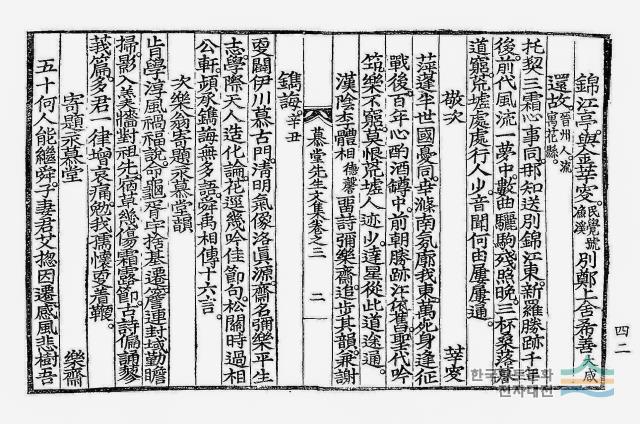 錦江亭與金莘叟 民覺號漁溪 別鄭上舍希善 大咸
還故 晉州人流寓花縣
托契三霜心事同那知送別錦江東新羅勝跡千年
後前代風流一夢中數曲驪駒殘照晩三杯桑落
道窮荒墟處處行人少音聞何由屢屢通
敬次 莘叟
萍蓬半世國憂同垂滌南氛廓我東萬死身逢征
戰後百年心酌酒罇中前朝勝跡江依舊聖代吟
筇樂不窮莫恨荒墟人迹少達星從此道途通
漢陰李體相 德馨 留詩彌樂齋追步其韻兼謝
鐫誨 辛丑
慕堂先生文集卷之三 二
更闢伊川慕古門淸明氣像洛眞源齋名彌樂平生
志學際天人造化論花逕幾吟佳節句松關時過相
公軒頻承鐫誨無多語舜禹相傳十六言
次樂翁寄題永慕堂韻
肯學淳風禍福說命龜胥宇捨基遷齋連封域勤瞻
掃影入羹墻對祖先宿草幾傷霜露節古詩偏誦蓼
莪篇多君一律增哀痛勉我孱懷更著鞭
寄題永慕堂 樂齋
五十何人能繼舜子妻君艾揔因遷感風悲樹吾
四二
한국향토문화
전자대전